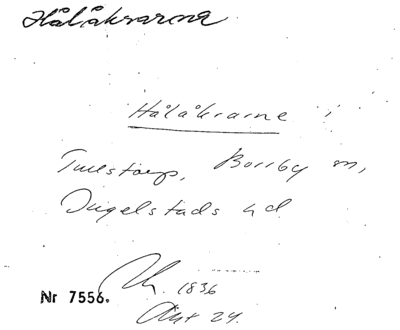 Hålåkrarna
Hålåkrarne i
Tullstorp, Borrby sn,
Ingelstads hd
Nr 7556.
1836
Akt 24.